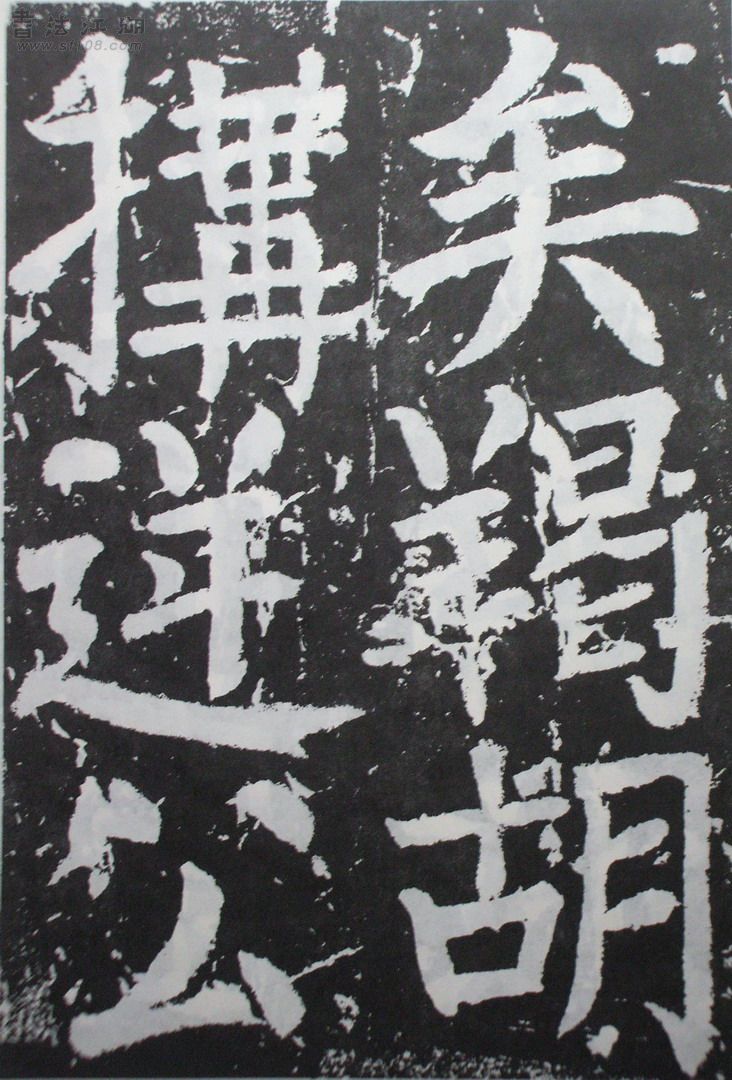 書法江湖
www.sf108.com
矣羯胡
搆逆公